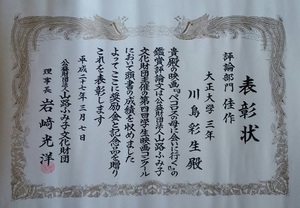 表彰状
評論部門 佳作
大正大学 三年
川島彩生殿
貴殿の映画『ペコロスの母に会いに行く』の
鑑賞評論文は公益財団法人山路ふみ子
文化財団主催の第四回学生映画コンクール
において頭書の成績を収めました
よってここに奨励金と記念品を贈り
これを表彰します
平成二十七年三月七日
公益財団法人山路ふみ子文化財団
理事長 岩崎光洋